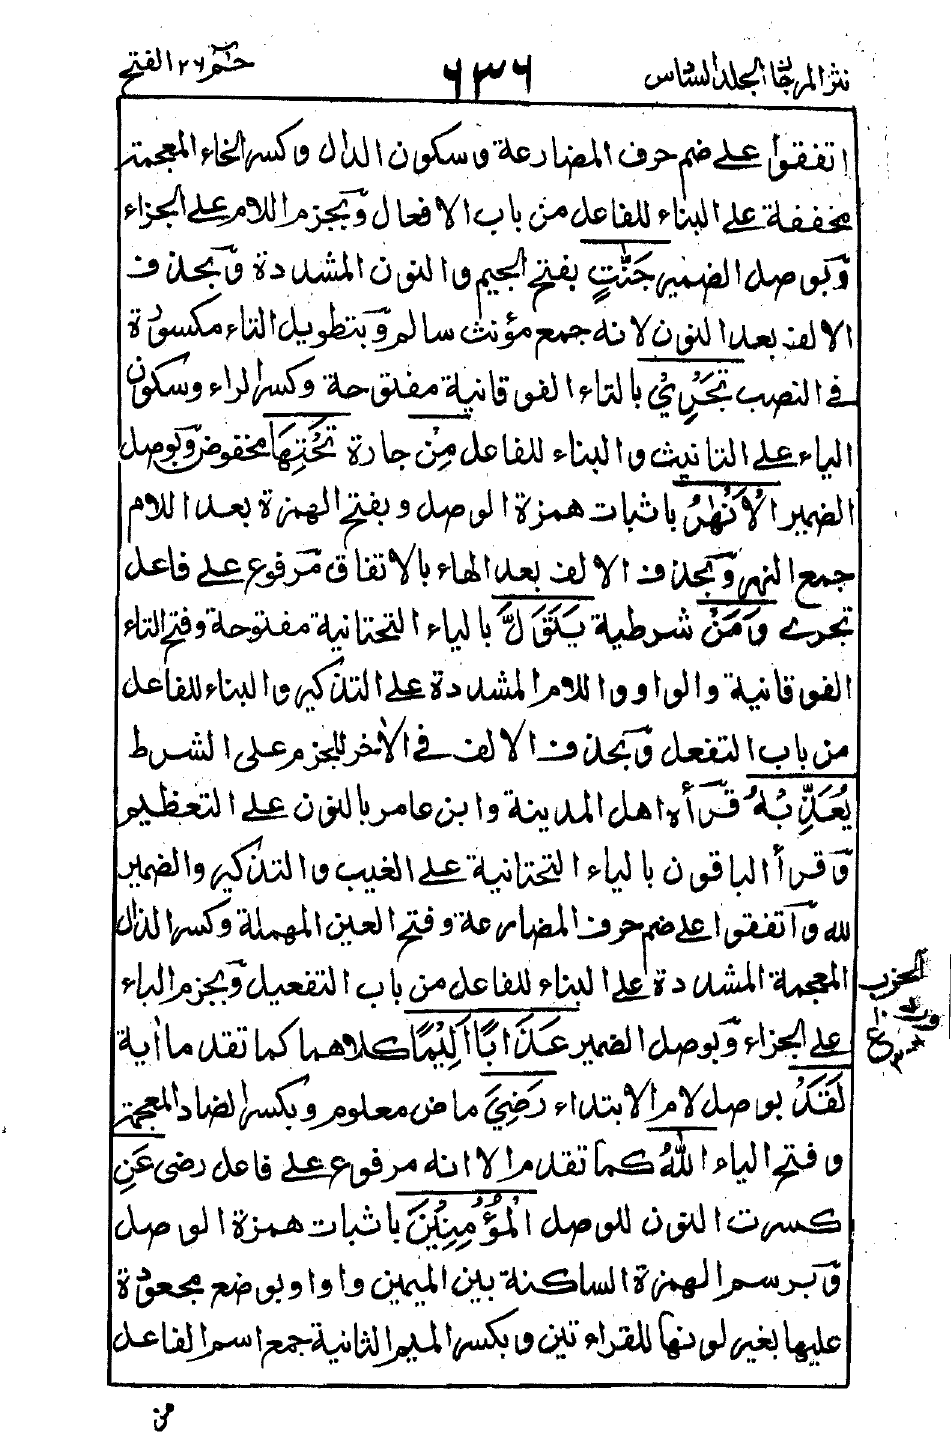 نثر المرجان المجلد السادس ٦٣٦ حٰمٓ ٢٦ الفتح
اتفقوا على ضم حرف المضارعة وسكون الدال وكسر الخاء المعجمة
مخففة على البناء للفاعل من باب الافعال وَبجزم اللام على الجزاء
وَبوصل الضمير جَنّٰتٍ بفتح الجيم والنون المشددة وَبحذف
الالف بعد النون لانه جمع مؤنث سالم وَبتطويل التاء مكسورة
فى النصب تَجْرِيْ بالتاء الفوقانية مفتوحة وكسر الراء وسكون
الياء على التانيث والبناء للفاعل مِنْ جارة تَحْتِهَا مخفوض وَبوصل
الضمير الْاَنْهٰرُ باثبات همزة الوصل وبفتح الهمزة بعد اللام
جمع النهر وَبحذف الالف بعد الهاء بالاتفاق مرفوع على فاعل
تجرى وَمَنْ شرطية يَتَوَلَّ بالياء التحتانية مفتوحة وفتح التاء
الفوقانية والواو واللام المشددة على التذكير والبناء للفاعل
من باب التفعل وَبحذف الالف فى الآخر للجزم على الشرط
يُعَذِّبْهُ قرأه اهل المدينة وابن عامر بالنون على التعظيم
وَقرأ الباقون بالياء التحتانية على الغيب والتذكير والضمير
لله وَاتفقوا على ضم حرف المضارعة وفتح العين المهملة وكسر الذال
المعجمة المشددة على البناء للفاعل من باب التفعيل وَبجزم الباء
على الجزاء وَبوصل الضمير عَذَابًا اَلِيْمًا كلاهما كما تقدما اٰية
لَقَدْ بوصل لام الابتداء رَضِيَ ماض معلوم وبكسر الضاد المعجمة
وفتح الياء اللّٰهُ كما تقدم الا انه مرفوع على فاعل رضى عَنِ
كسرت النون للوصل الْمُؤْمِنِيْنَ باثبات همزة الوصل
وَبرسم الهمزة الساكنة بين الميمين واوا وبوضع مجعودة
عليها بغير لونها للقراءتين وبكسر الميم الثانية جمع اسم الفاعل
من
الحزب